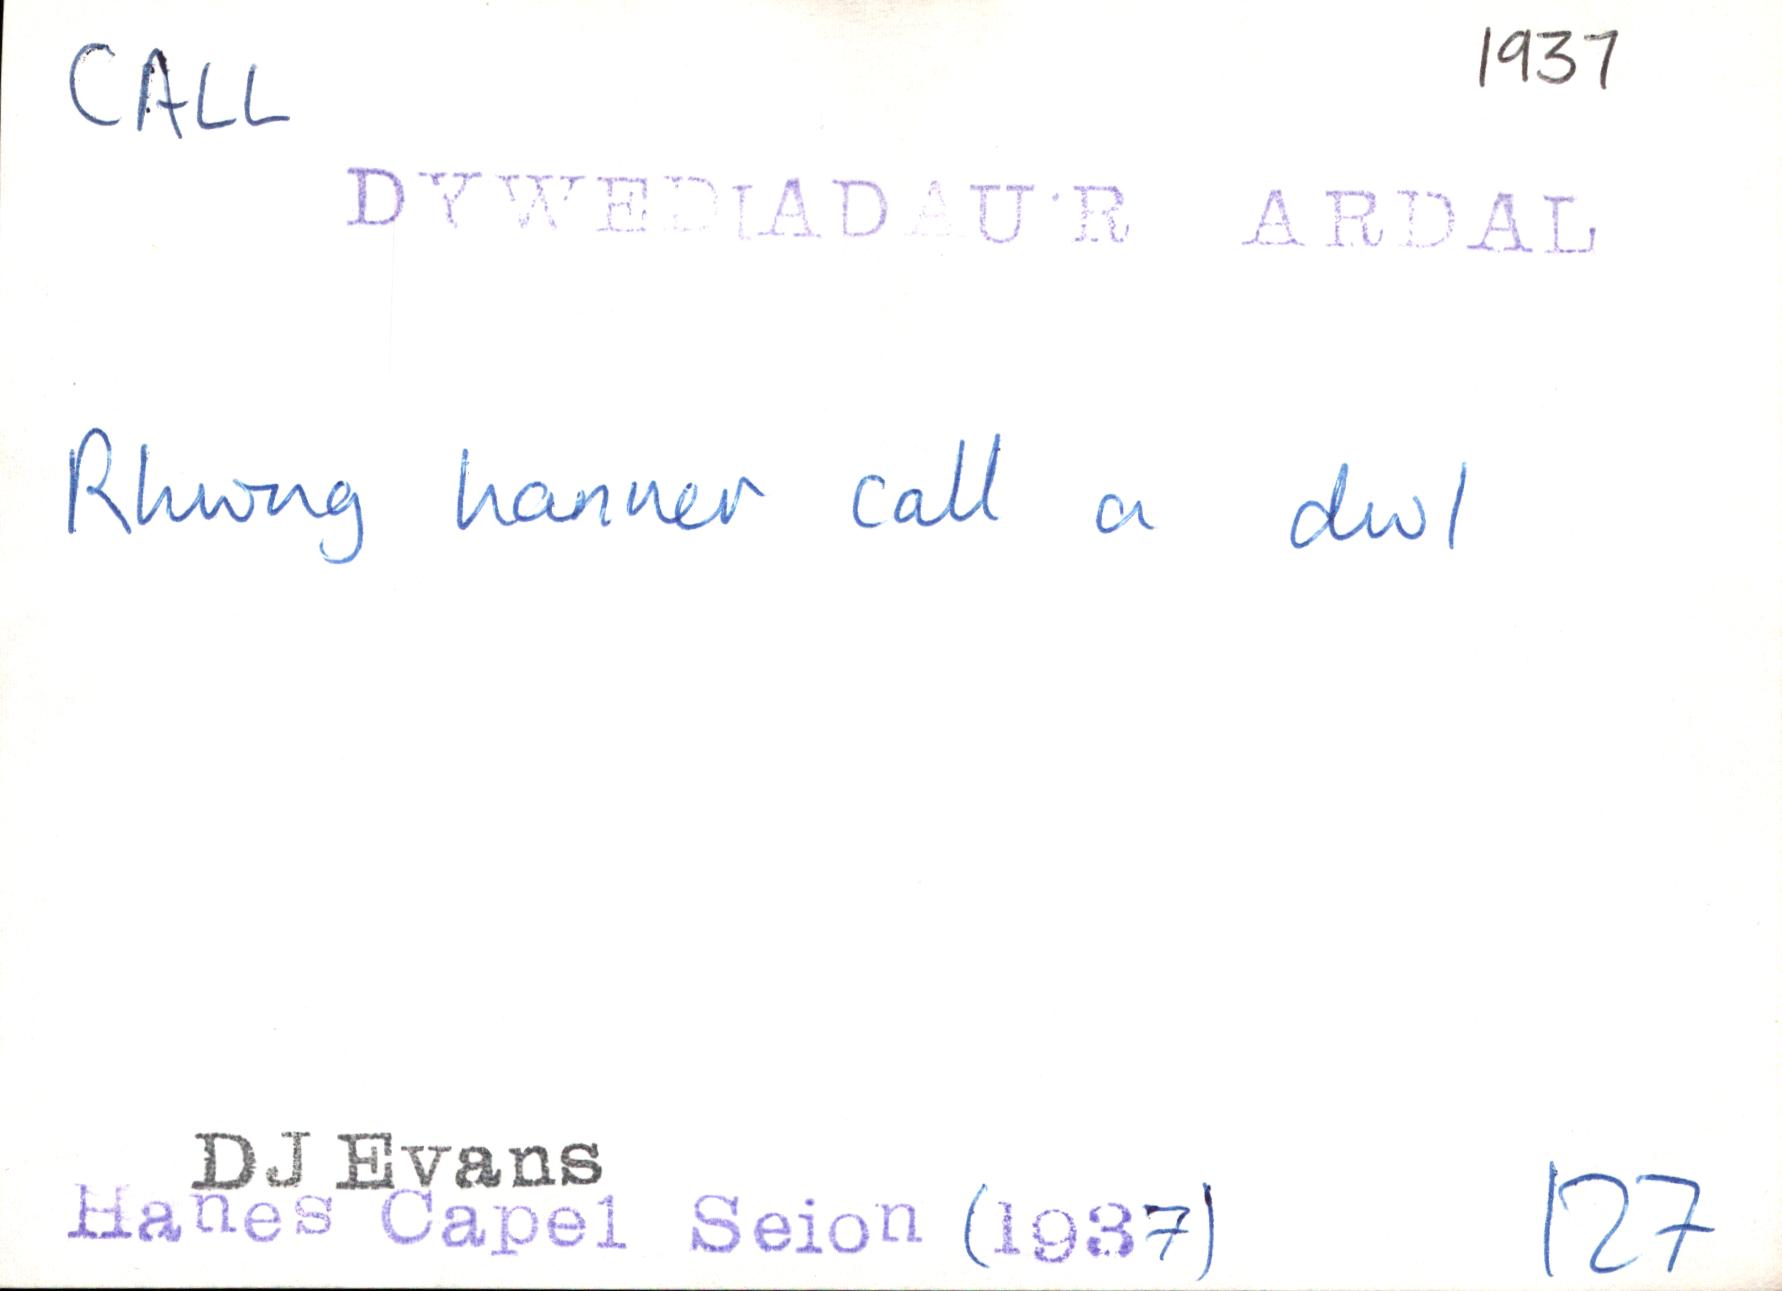 CALL 1937
DYWEDIADAU'R ARDAL
Rhwng hanner call a dwl
DJ Evans
Hanes Capel Seion (1937) 127